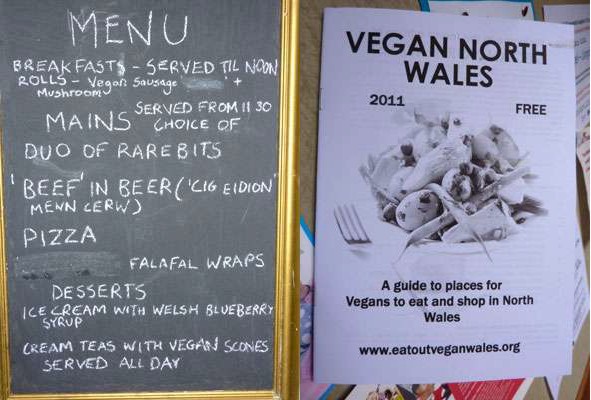 MENU
BREAKFASTS - SERVED TIL NOON
ROLLS - Vegan Sausage +
Mushroom
SERVED FROM 11 30
MAINS CHOICE OF
DUO OF RAREBITS
'BEEF' IN BEER ('CIG EIDION'
MENN CERW)
PIZZA
FALAFAL WRAPS
DESSERTS
ICE CREAM WITH WELSH BLUEBERRY
SYRUP
CREAM TEAS WITH VEGAN SCONES
SERVED ALL DAY
VEGAN NORTH
WALES
2011
FREE
A guide to places for
Vegans to eat and shop in North
Wales
www.eatoutveganwales.org